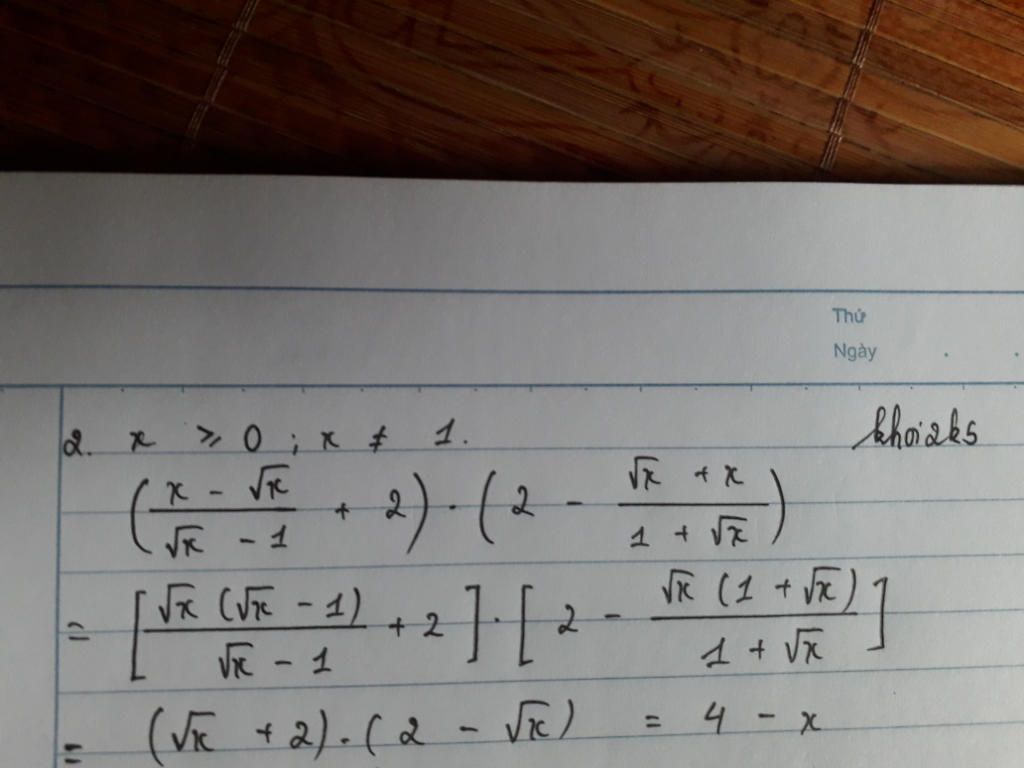 Thứ
Ngày
2. x ⩾ 0 ; x ≠ 1. khoi2k5
(x - √x / √x - 1 + 2) . (2 - √x + x / 1 + √x)
= [√x (√x - 1) / √x - 1 + 2] . [2 - √x (1 + √x) / 1 + √x]
= (√x + 2) . (2 - √x) = 4 - x